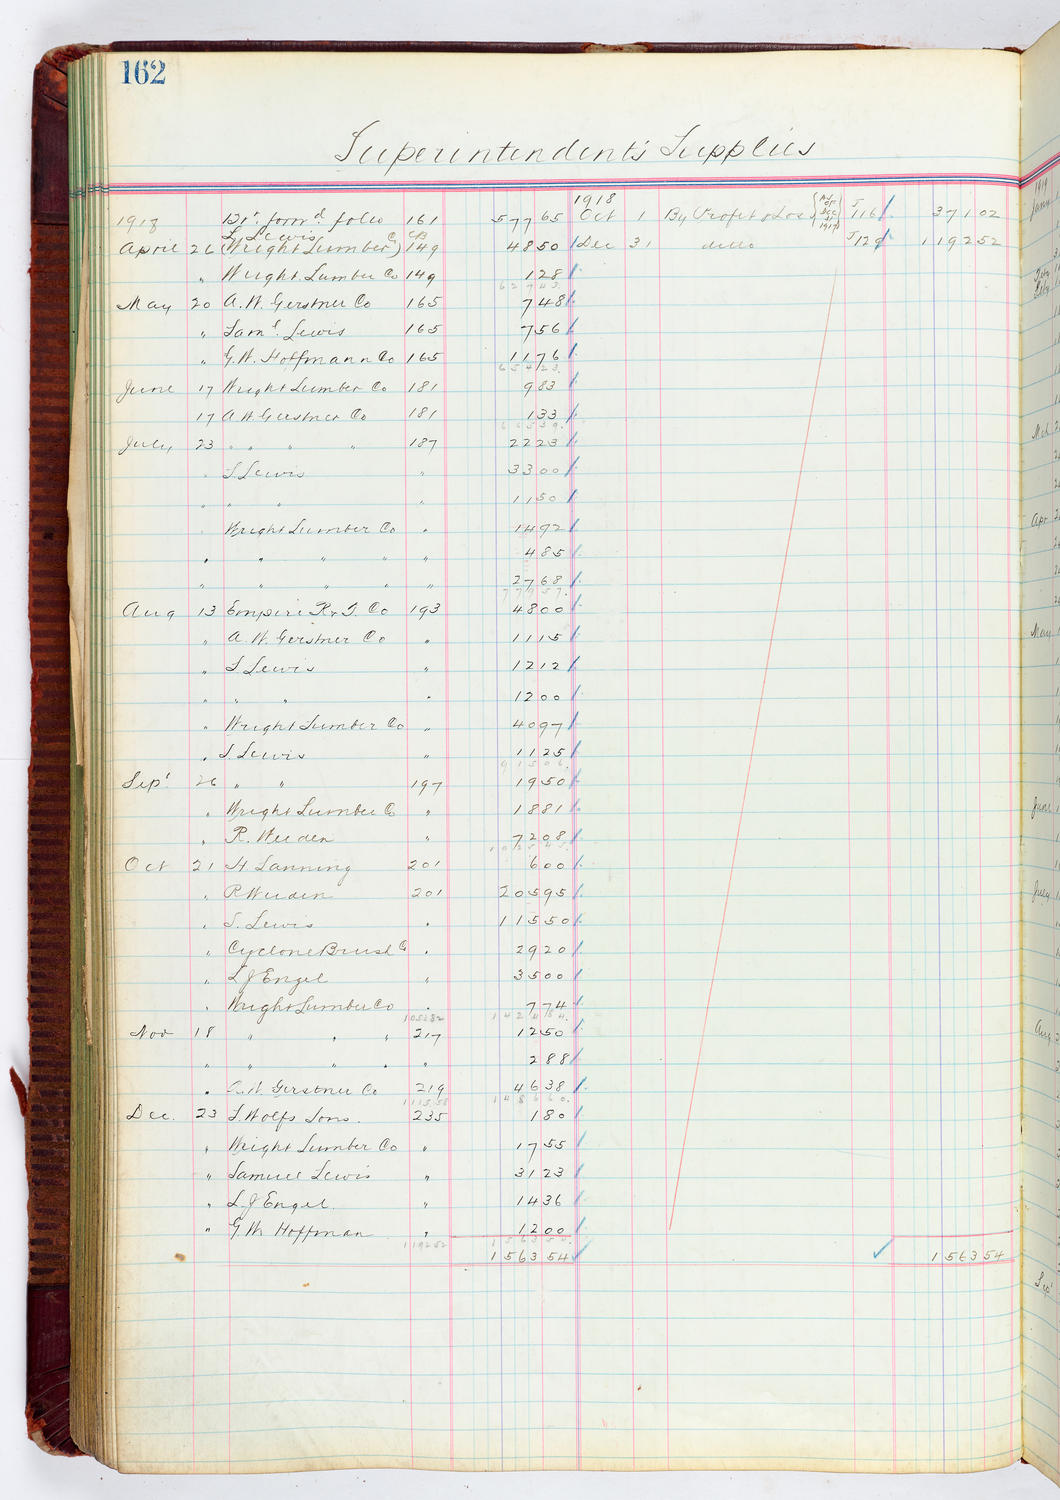 162
Superintendent's Supplies
1918
1918 Bt. forwd. folio 161 577 65 Oct 1 By Profit & Loss (As of Dec 31 1917) J 116 371 02
S. Lewis CB
April 26 (Wright Lumber Co) 149 48 50 Dec 31 ditto J 129 1192 52
" Wright Lumber Co 149 1 28
627 43
May 20 A. W. Gerstner Co 165 7 48
" Saml. Lewis 165 7 56
" G. W. Hoffmann Co 165 11 76
654 23
June 17 Wright Lumber Co 181 9 83
17 A W Gerstner Co 181 1 33
665 39
July 23 " " " " 187 22 23
" S Lewis " 33 00
" " " " 11 50
Wright Lumber Co " 14 92
" " " " " 4 85
" " " " " 27 68
779 57
Aug 13 Empire R & T. Co 193 48 00
" A. W. Gerstner Co " 11 15
" S Lewis " 12 12
" " " " 12 00
" Wright Lumber Co " 40 97
" S. Lewis " 11 25
915 06
Sept 26 " " 197 19 50
" Wright Lumber Co " 18 81
" R. Weiden " 72 08
1025 45
Oct 21 H Lanning 201 6 00
" R Weiden 201 205 95
" S. Lewis " 115 50
" Cyclone Brush Co " 29 20
" L J Engel " 35 00
" Wright Lumber Co " 7 74
1053 82 1424 84
Nov 18 " " " 217 12 50
" " " " " 2 88
" A. W. Gerstner Co 219 46 38
1115 58 1486 60
Dec. 23 S. Wolfs Sons. 235 1 80
" Wright Lumber Co " 17 55
" Samuel Lewis " 31 23
" L. J Engel. " 14 36
" G. W. Hoffman " 12 00
1192 52 1563 54
1563 54 1563 54